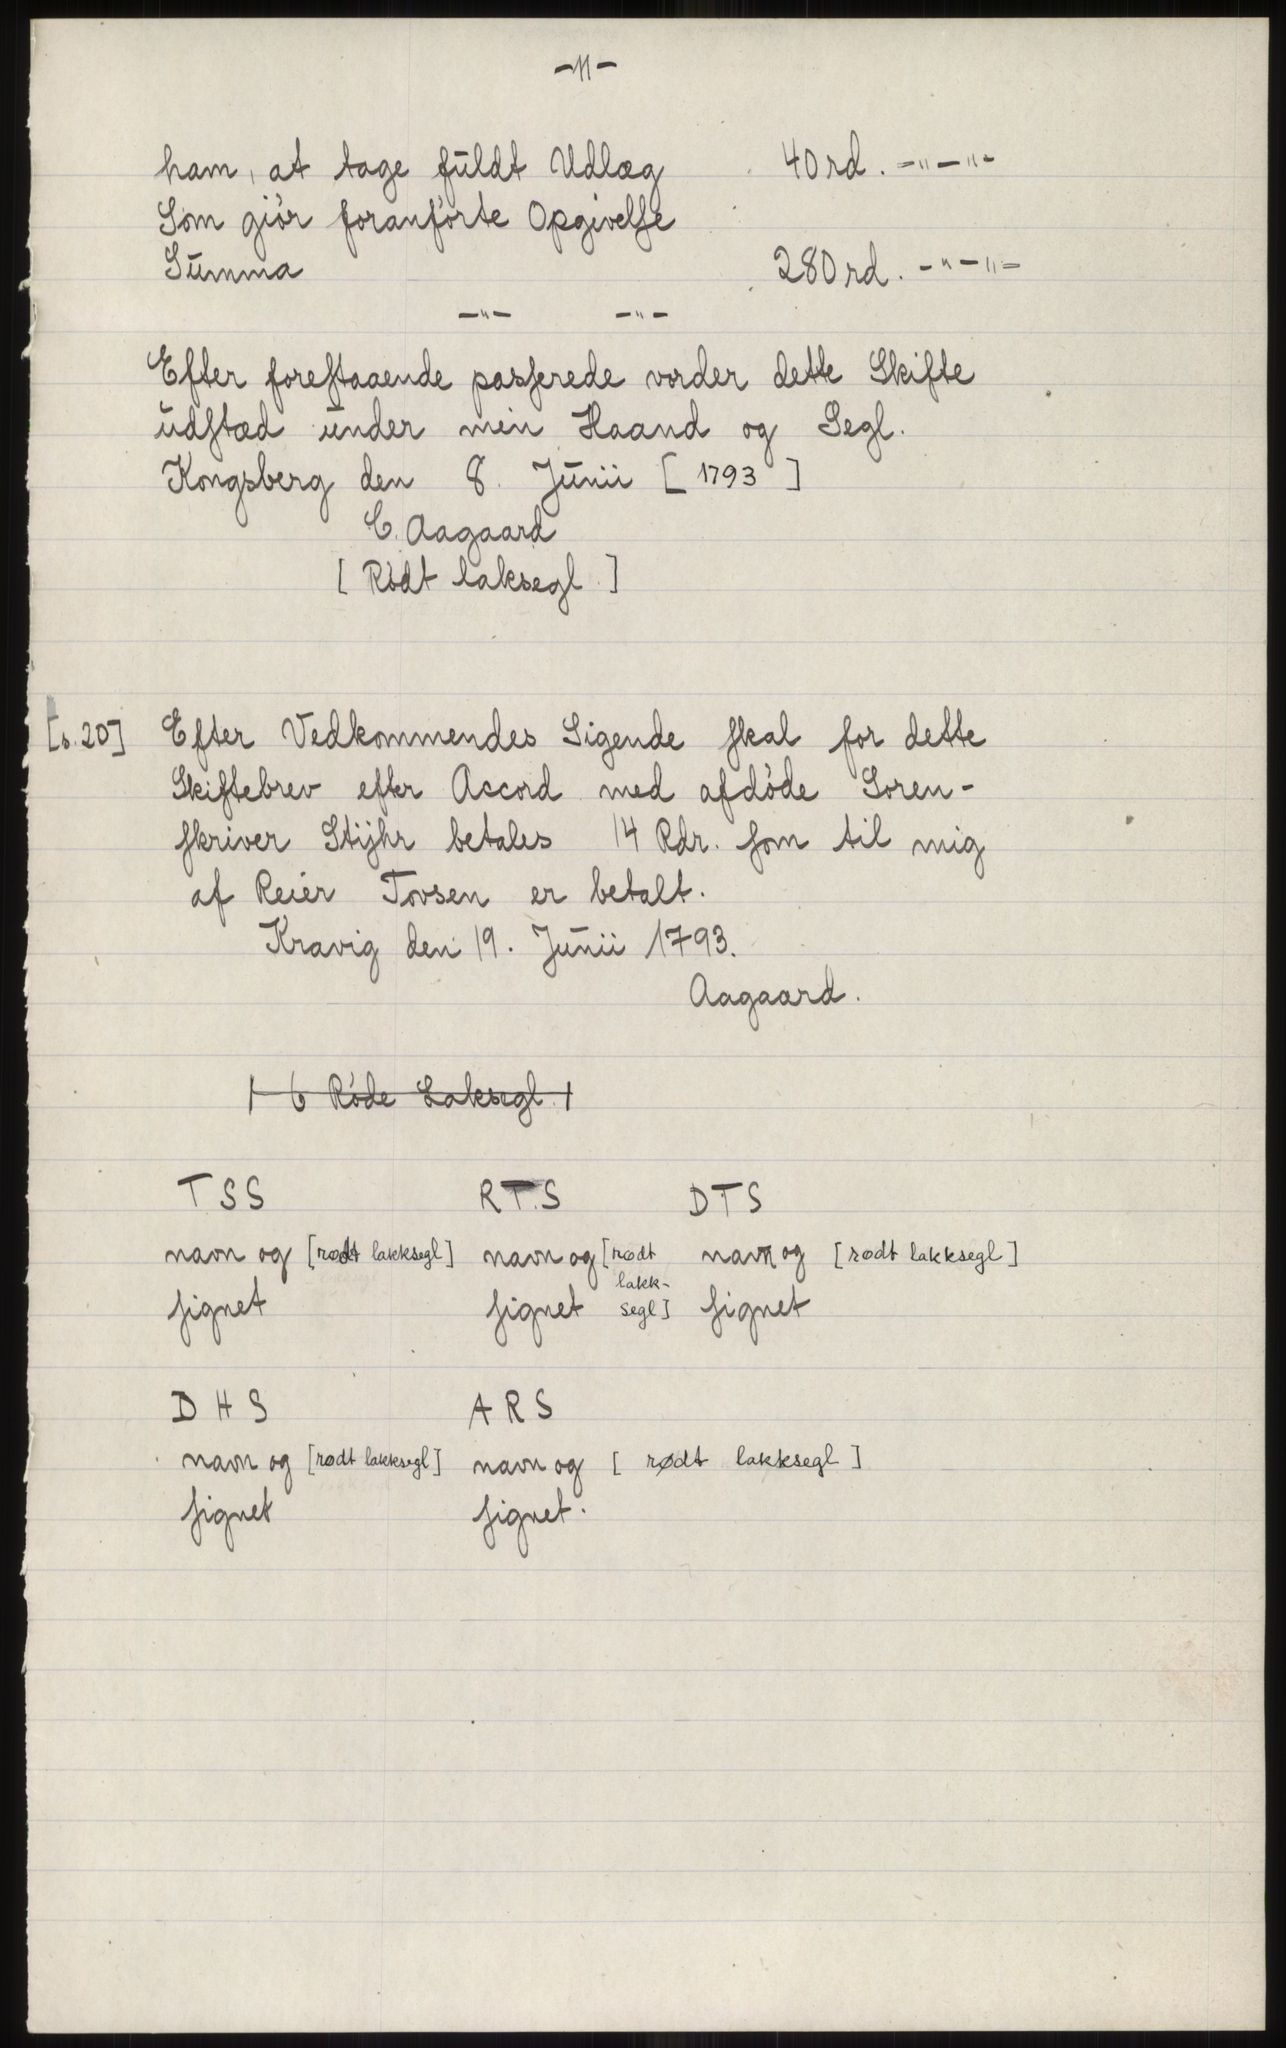 -11-
ham, at tage fuldt Udlæg 40 rd. -"-"-
Som giör foranförte Opgivelse
Summa 280 rd. -"-"-
-"- -"-
Efter forestaaende passerede vorder dette Skifte
udstæd under min Haand og Segl.
Kongsberg den 8. Junii [1793]
C. Aagaard
[Rödt laksegl.]
[s.20] Efter Vedkommendes Sigende skal for dette
Skiftebrev efter Accord med afdöde Soren-
skriver Stijhr betales 14 Rdr. som til mig
af Reier Tovsen er betalt.
Kravig den 19. Junii 1793.
Aagaard.
/ 6 Röde Laksegl. /
TSS RT.S DTS
navn og [rødt lakksegl] navn og [rødt navn og [rødt lakksegl]
lakk-
signet signet segl] signet
DHS ARS
navn og [rødt lakksegl] navn og [rødt lakksegl]
signet signet.